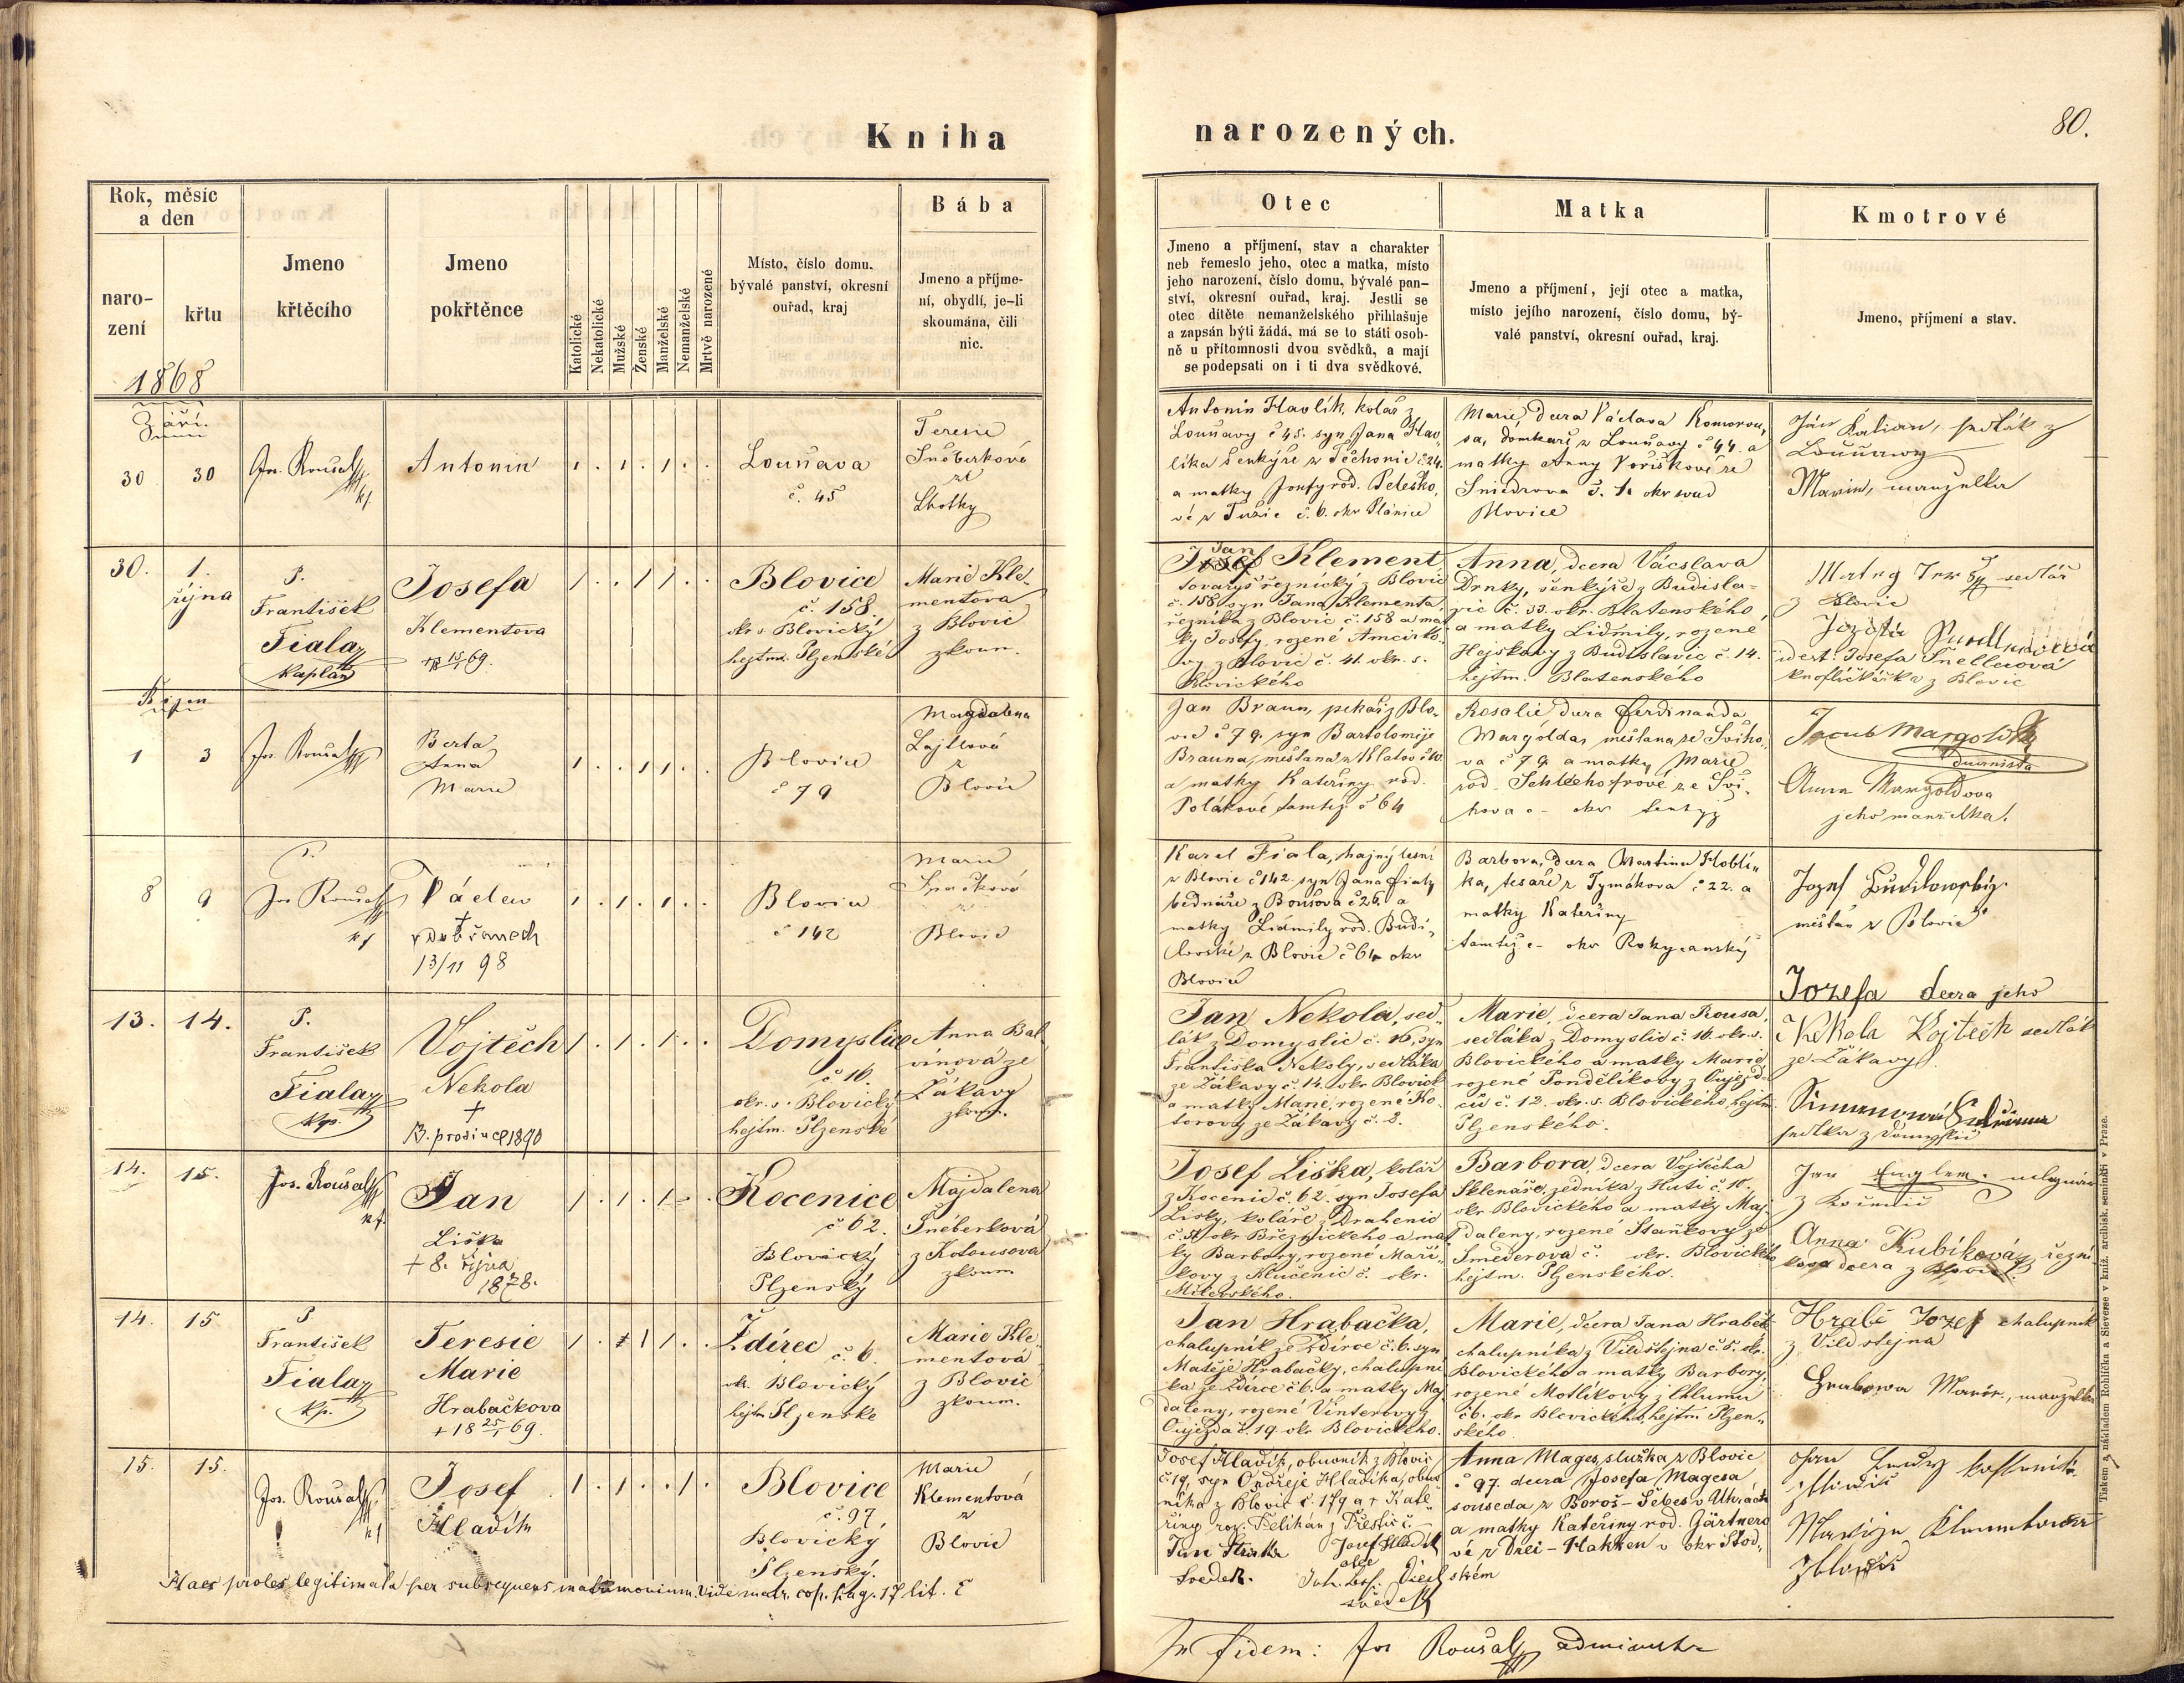 Kniha
narozených.
80.
Rok, měsíc
a den
naro-
zení
křtu
1868
Jmeno
křtěcího
Jmeno
pokřtěnce
Katolické
Nekatolické
Mužské
Ženské
Manželské
Nemanželské
Mrtvě narozené
Místo, číslo domu,
bývalé panství, okresní
ouřad, kraj
Bába
Jmeno a příjme-
ní, obydlí, je-li
skoumána, čili
nic.
Otec
Jmeno a příjmení, stav a charakter
neb řemeslo jeho, otec a matka, místo
jeho narození, číslo domu, bývalé pan-
ství, okresní ouřad, kraj. Jestli se
otec dítěte nemanželského přihlašuje
a zapsán býti žádá, má se to státi osob-
ně u přítomnosti dvou svědků, a mají
se podepsati on i ti dva svědkové.
Matka
Jmeno a příjmení, její otec a matka,
místo jejího narození, číslo domu, bý-
valé panství, okresní ouřad, kraj.
Kmotrové
Jmeno, příjmení a stav.
Září.
30
30
Jos. Roušal
kf
Antonín
Louňava
č. 45
Teresie
Šnéberková
ze
Lhotky
Antonín Havlík, kolář z
Louňavy č 45. syn Jana Hav„
líka šenkýře z Těchonic č 24.
a matky Josefy rod. Peleško„
vé z č. 6. okr Plánice
Marie, dcera Václava Komorou„
sa, domkaře z Louňavy č 44. a
matky Anny Voříškové ze
Smederova č. 1. okr soud
Blovice
Ján Kalian, sedlák z
Louňavy
Marie, manželka
30.
1.
října
P.
František
Fiala
Kaplan
Josefa
Klementova
+ 18 15/1 69.
Blovice
č. 158.
okr s Blovický
hejtm. Plzenské
Marie Kle„
mentova
z Blovic
zkoum.
Jan
Josef Klement
tovaryš řeznický z Blovic
č. 158, syn Jana Klementa,
řezníka z Blovic č. 158 a mat
ky Josefy, rozené
vy z Blovic č. 41. okr. s.
Blovického
Anna, dcera Václava
Drnky, šenkýře z Budisla„
vic č. 33. okr. Blatenského
a matky Lidmily, rozené
Hejskovy z Budislavic č. 14.
hejtm. Blatenského
sedlář
z Blovic
idest: Josefa Šnellerová
knoflíčkářka z Blovic
Říjen
1
3
Jos. Roušal
Berta
Anna
Marie
Blovice
č 79
Magdalena
Lajtlová
z
Blovic
Jan Braun, pekař z Blo„
vic č 79. syn Bartoloměje
Brauna, měšťana z Klatov č
a matky Kateřiny rod.
Polákové tamtéž č 64
Rosalie dcera Ferdinanda
Margolda, měšťana ze Šviho„
va č 79 a matky Marie
rod. Schlechofrové ze Švi„
hova - okr tentýž
Jacub Margold
Anna Margoldova
jeho manželka.
8
9
P.
Jos Roušal
kf
Václav
+
v Dobřanech
13/11 98
Blovice
č 142
Marie
Špačková
z
Blovic
Karel Fiala, hajný lesní
z Blovic č 142. syn Jana Fialy
bednáře z Bousova č 26. a
matky Lidmily rod. Budi„
lovské z Blovic č 64 okr
Blovice
Barbora, dcera Martina Hoblí„
ka, tesaře z Tymákova č 22. a
matky Kateřiny
tamtéž - okr Rokycanský
Jozef Budilowský
měšťan z Blovic
Jozefa dcera jeho
13.
14.
P.
František
Fiala
kp.
Vojtěch
Nekola
+
13. prosince 1890
Domyslice
č 16.
okr. s. Blovický
hejtm. Plzenské
Anna Bal„
vínová ze
Žákavy
zkoum.
Jan Nekola, sed„
lák z Domyslic č. 16, syn
Františka Nekoly, sedláka
ze Žákavy č. 14. okr Blovick
a matky Marie, rozené Ko„
torovy ze Žákavy č. 2.
Marie, dcera Jana Rousa,
sedláka z Domyslic č. 16. okr. s.
Blovického a matky Marie,
rozené Pondělíkovy z Oujezd„
čů č. 12. okr. s. Blovického, hejtm.
Plzenského.
Nekola Vojtěch sedlák
ze Žákavy.
sedlka z Domyslic
14.
15.
Jos. Roušal
kf.
Jan
Liška
+ 8. října
1878.
Kocenice
č 62.
Blovický
Plzenský
Majdalena
Šnéberková
z Kotousova
zkoum
Josef Liška, kolář
z Kocenic č. 62. syn Josefa
Lišky, koláře z Drahenic
č. 51, okr Březnického a mat
ky Barbory, rozené Maří„
kovy z Klučenic č. okr.
Milevského.
Barbora, dcera Vojtěcha
Sklenáře, zedníka z Huti č. 10.
okr Blovického a matky Maj„
daleny, rozené Staňkovy ze
Smederova č. okr. Blovického
hejtm. Plzenského.
Jan Englem.
z Kocenic
Anna Kubíková, řezní„
kova dcera z Blovic
14.
15.
P
František
Fiala
kp.
Teresie
Marie
Hrabačkova
+ 18 25/1 69.
Ždírec č. 6.
okr. Blovický
hejtm Plzenské
Marie Kle„
mentová
z Blovic
zkoum.
Jan Hrabačka,
chalupník ze Ždírce č. 6. syn
Matěje Hrabačky, chalupní
ka ze Ždírce č 6. a matky Maj
daleny, rozené Vinterovy z
Oujezda č. 19. okr Blovického.
Marie, dcera Jana Hraběte
chalupníka z Vildštejna č. 5. okr.
Blovického a matky Barbory,
rozené Motlíkovy z Chlumu
č 6. okr Blovického, hejtm. Plzen„
ského
Hrabě Jozef chalupník
z Vildstejna
Hrabowa Marie, manzelka
15.
15.
Jos. Roušal
kf
Josef
Hladík
Blovice
č. 97
Blovický
Plzenský.
Marie
Klementová
z
Blovic
Josef Hladík, obuvník z Blovic
č 19, syn Ondřeje Hladíka, obuv
níka z Blovic č. 179 a + Kate„
řiny roz. Pelikán z Přeštic č. -
Jan
Svedek.
Josef Hladík
otec
svědek
Anna Mages, služka z Blovic
č 97. dcera Josefa Magesa
souseda z Boroš-Šebes v Uhrách
a matky Kateřiny rod. Gärtnero
vé z Drei-Hakken v okr Stod„
ském
z Blovic
Marie Klementova
z Blovic
Haec proles legitimata per subsequens matrimonium. Vide matr. cop. pag. 17 lit. E
In fidem: Jos Roušal administr
Tiskem a nákladem Rohlíčka a Sieverse v kníž. arcibisk. semináři v Praze.